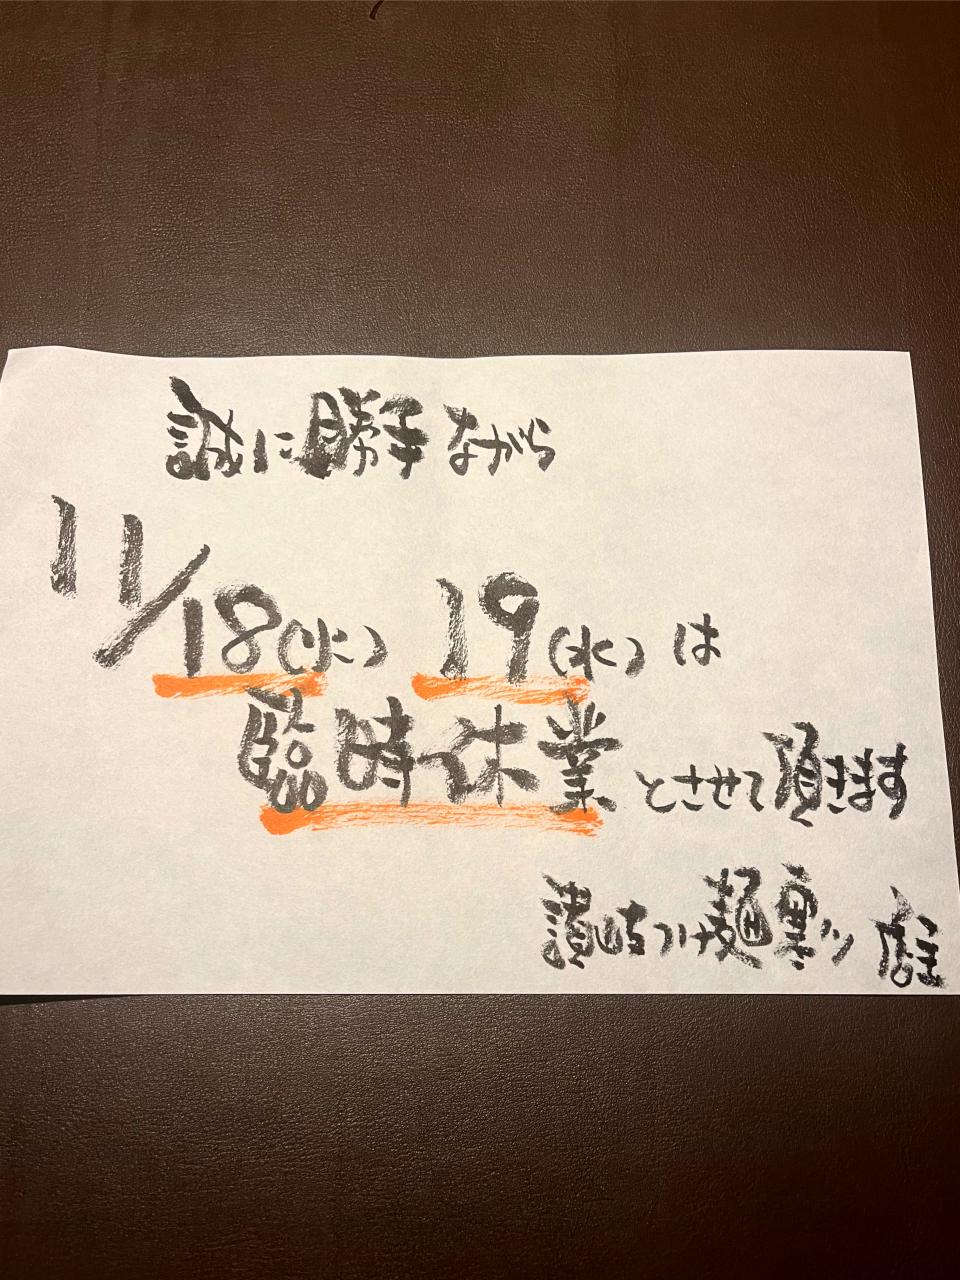 誠に勝手ながら
11/18(火) 19(水)は
臨時休業とさせて頂きます
讃岐つけ麺 寒川 店主